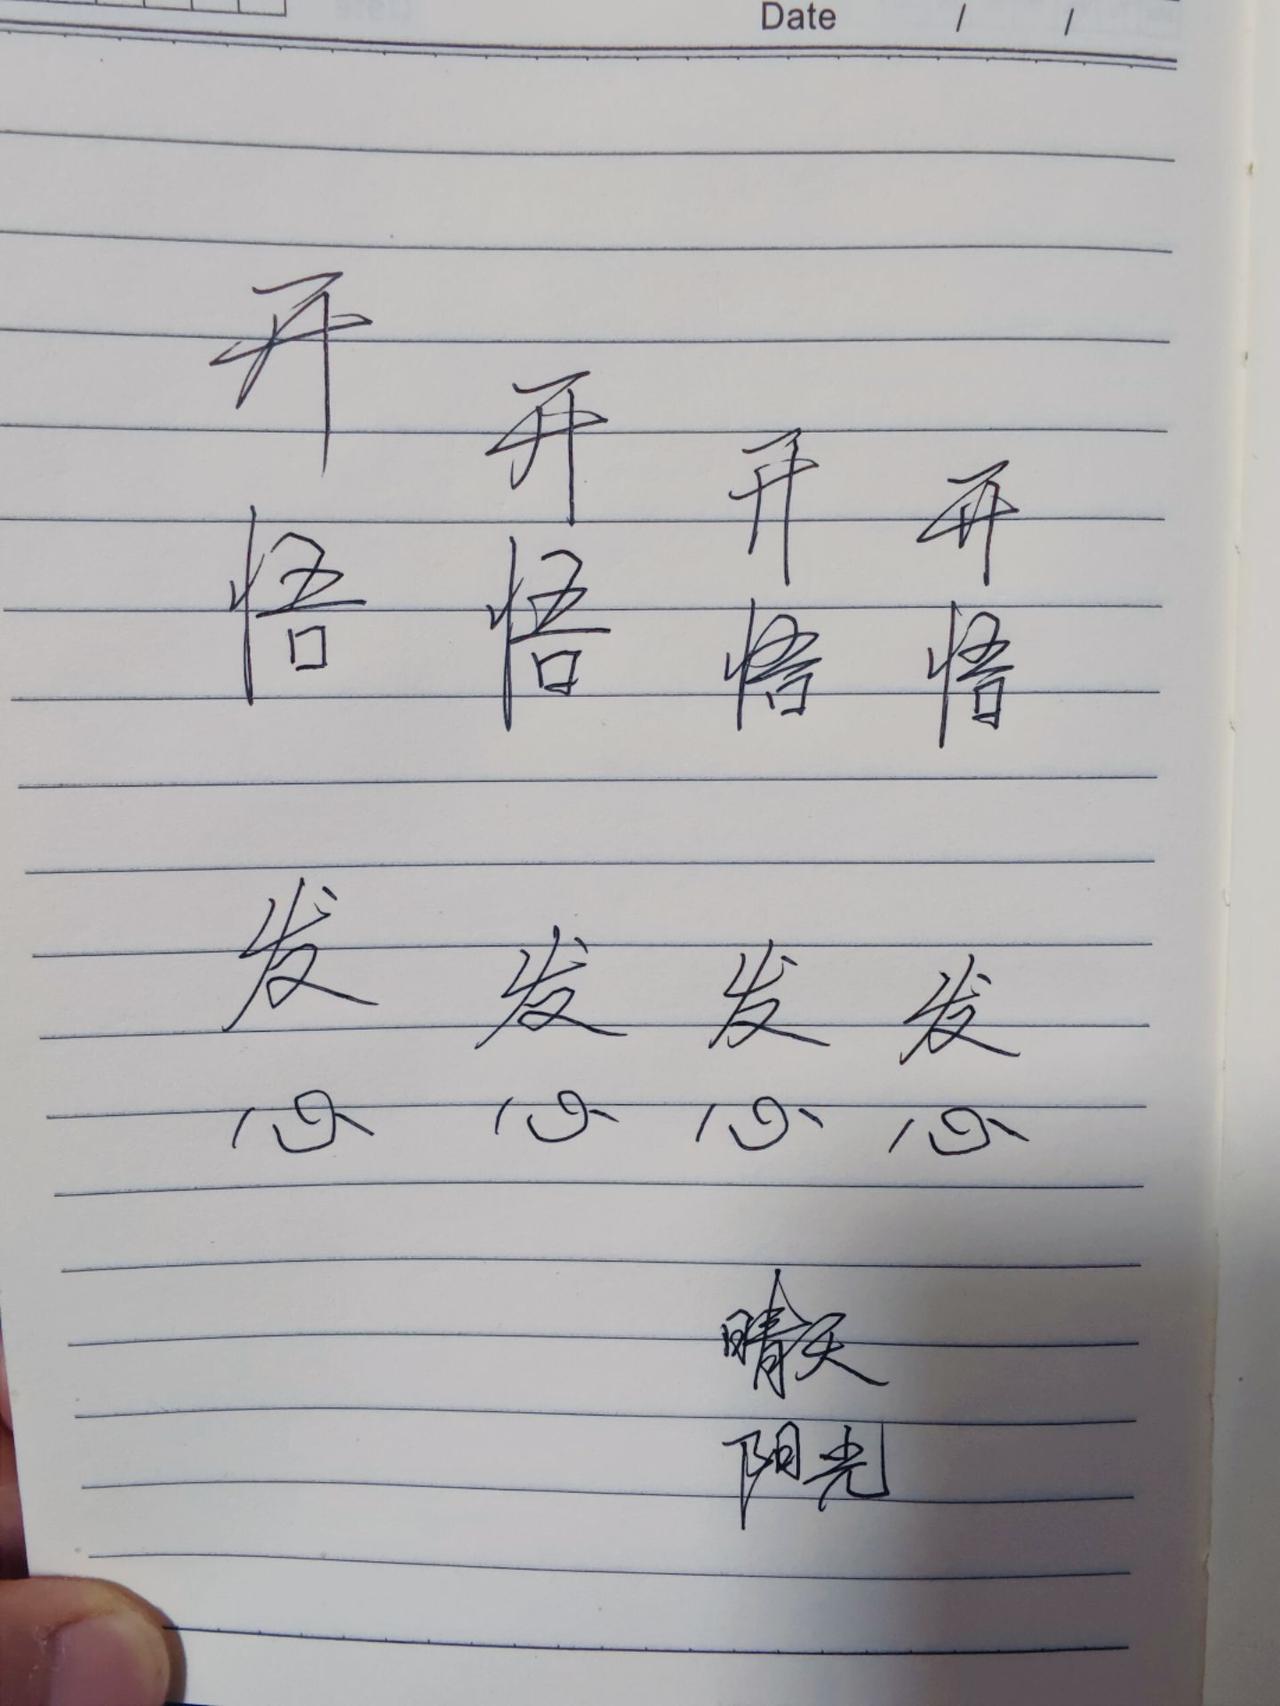 Date / /
开 开 开 开
悟 悟 悟 悟
发 发 发 发
心 心 心 心
晴天
阳光